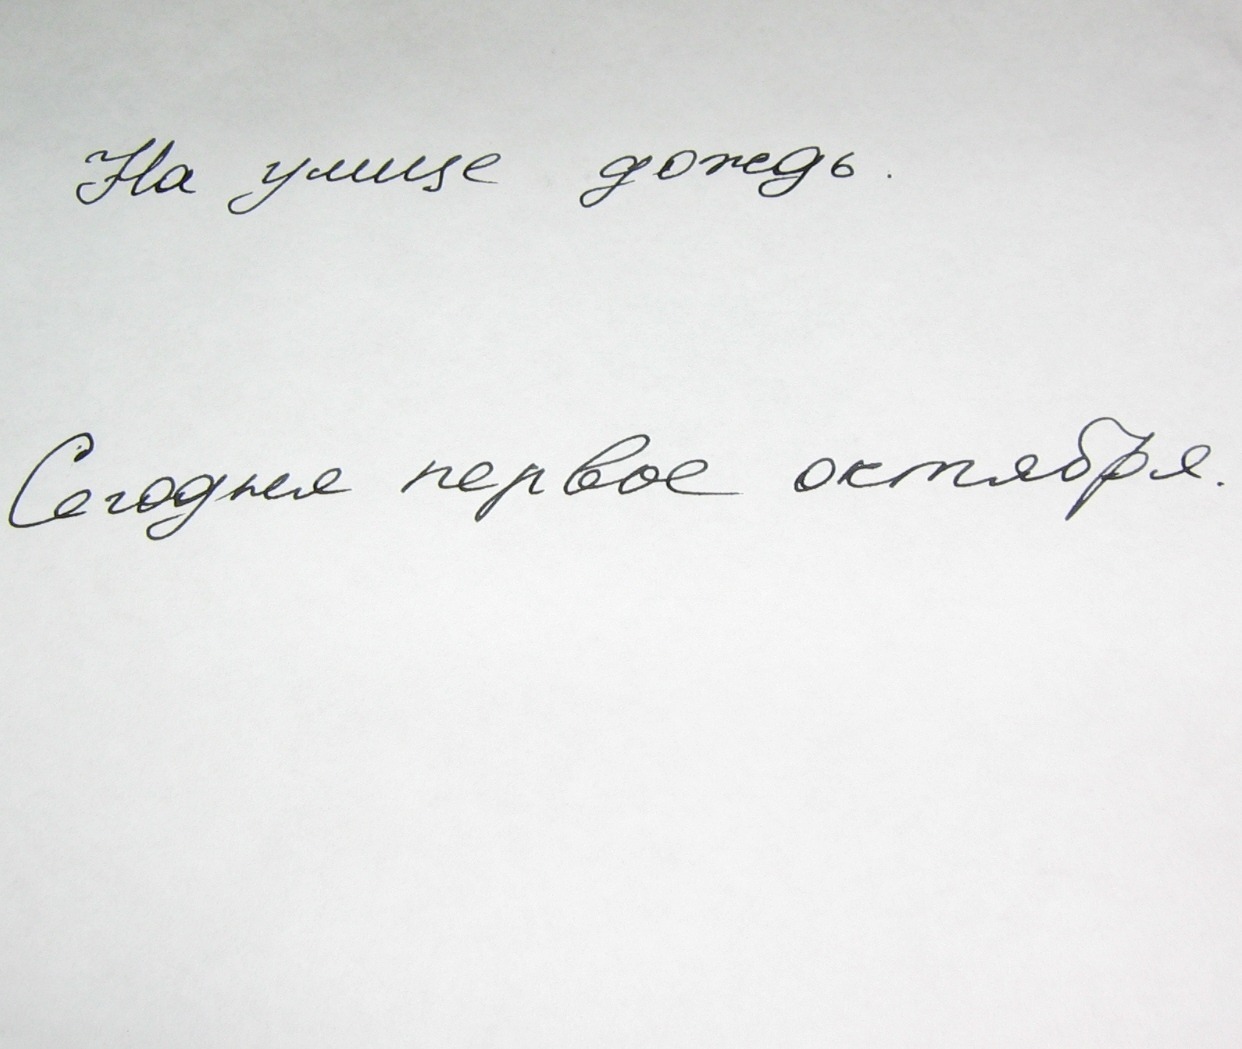 На улице дождь.
Сегодня первое октября.